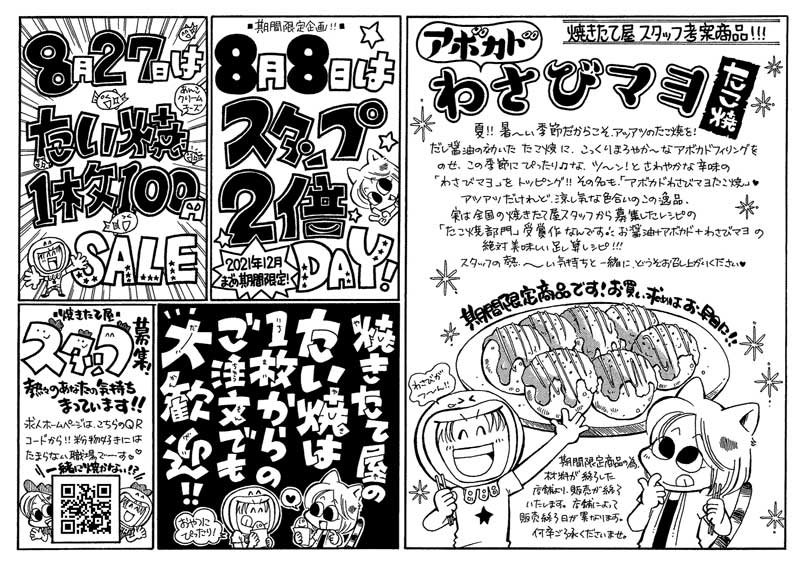 8月27日は
あん&
クリーム
チーズ
たい焼
1枚100円
SALE
■期間限定企画!!■
8月8日は
スタンプ
2倍
DAY!
2021年12月
まで期間限定!
焼きたて屋 スタッフ考案商品!!!
アボカド
わさびマヨ
たこ焼
夏!! 暑〜い季節だからこそ、アッアツのたこ焼を!
だし醤油の効いた たこ焼に、こっくりまろやか〜なアボカドフィリングを
のせ、この季節にぴったり♫な、ツ〜ン!とさわやかな辛味の
「わさびマヨ」を トッピング!! その名も「アボカドわさびマヨたこ焼」♥
アツアツだけれど、涼し気な色合いのこの逸品、
実は全国の焼きたて屋スタッフから募集したレシピの
「たこ焼部門」受賞作なんです。お醤油+アボカド+わさびマヨの
絶対美味しい足し算レシピ!!!
スタッフの熱〜い気持ちと一緒に、どうぞお召し上がりください♥
期間限定商品です!お買い求めはお早目に!!
わさびが
ツ〜ン!!
期間限定商品の為、
材料が終了した
店舗より、販売が終了
いたします。店舗によって
販売終了日が異なります。
何卒ご了承くださいませ。
焼きたて屋
スタッフ
募集!
熱いのあなたの気持ち
まっています!!
求人ホームページは、こちらのQR
コードから!! 粉物好きには
たまらない職場で〜す♥♥
一緒に焼かない!?
焼きたて屋の
たい焼は
1枚からの
ご注文でも
大歓迎!!
おやつに
ぴったり!